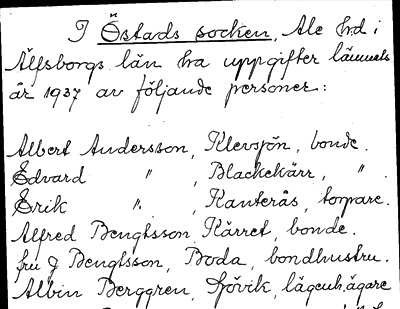 I Östads socken, Ale hd i
Älfsborgs län ha uppgifter lämnats
år 1937 av följande personer:
Albert Andersson, Klevsjön, bonde.
Edvard " , Blackekärr, " .
Erik " , Kanterås, torpare.
Alfred Bengtsson, Kärret, bonde.
fru J Bengtsson, Boda, bondhustru.
Albin Berggren, Sjövik, lägenh.ägare